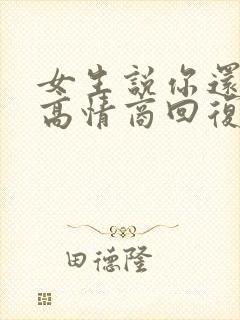 女生說你還
高情商回復
田德隆